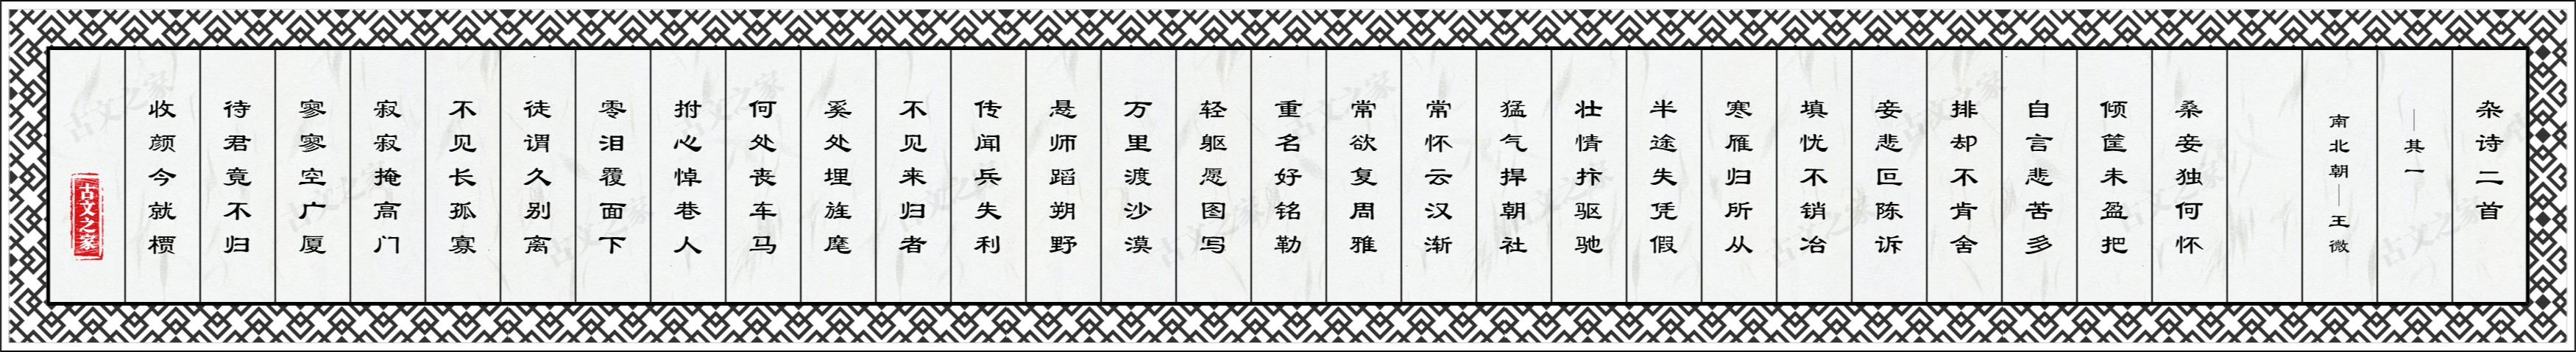 杂诗二首
—其一
南北朝—王微
桑妾独何怀
倾筐未盈把
自言悲苦多
排却不肯舍
妾悲叵陈诉
填忧不销冶
寒雁归所从
半途失凭假
壮情抃驱驰
猛气捍朝社
常怀云汉渐
常欲复周雅
重名好铭勒
轻躯愿图写
万里渡沙漠
悬师蹈朔野
传闻兵失利
不见来归者
奚处埋旌麾
何处丧车马
拊心悼巷人
零泪覆面下
徒谓久别离
不见长孤寡
寂寂掩高门
寥寥空广厦
待君竟不归
收颜今就槚
古文之家